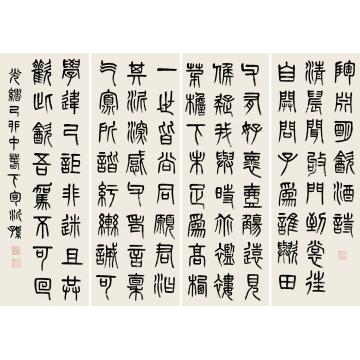 陶淵明飲酒詩
清晨聞敂門倒裳往
自開問子為誰與田
父有好懷壺觴遠見
候疑我與時乖襤縷
茅檐下未足為高棲
一世皆尚同願君汩
其泥深感父老言稟
气寡所諧紆轡誠可
學違己詎非迷且共
歡此飲吾駕不可回
光緒己卯中春下旬沂孫